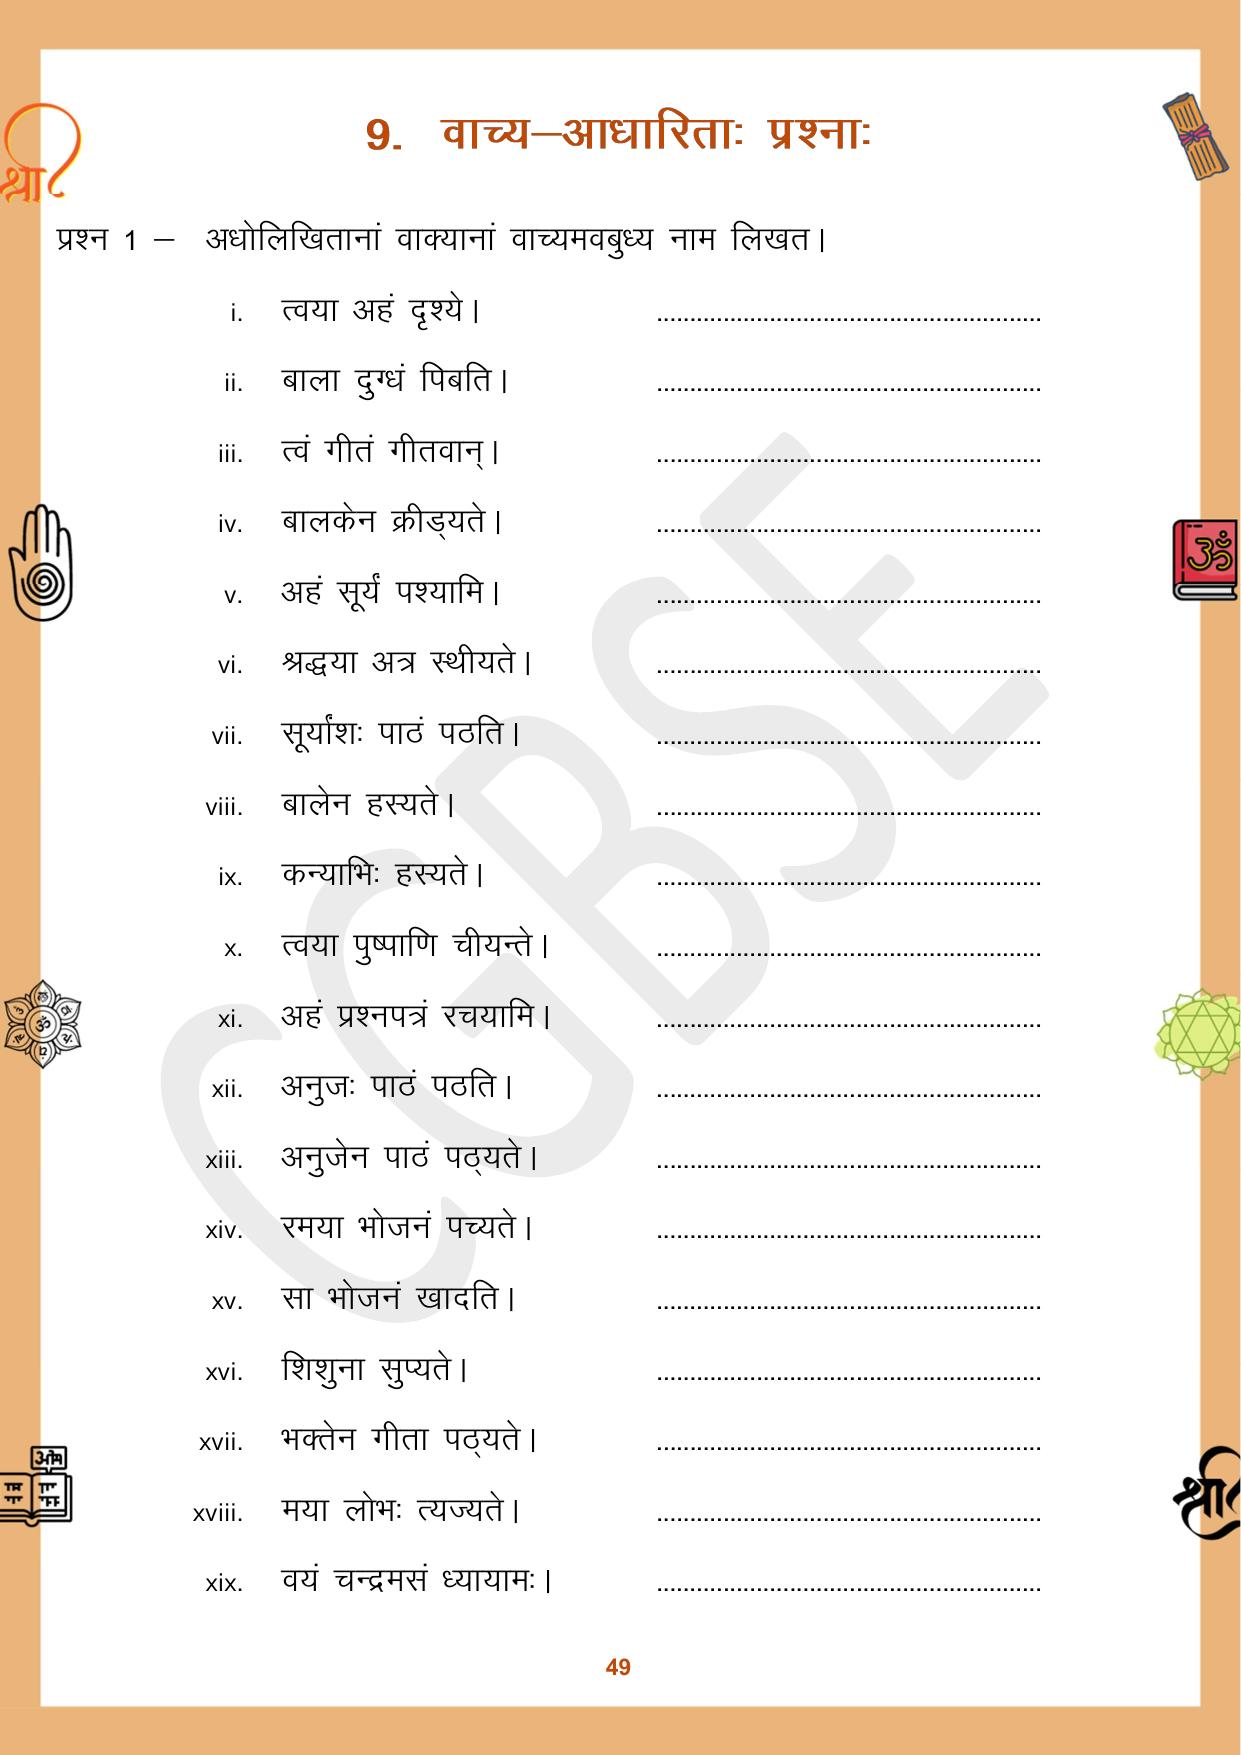 9. वाच्य–आधारिताः प्रश्नाः
प्रश्न 1 – अधोलिखितानां वाक्यानां वाच्यमवबुध्य नाम लिखत।
i. त्वया अहं दृश्ये। ..........................................................
ii. बाला दुग्धं पिबति। ..........................................................
iii. त्वं गीतं गीतवान्। ..........................................................
iv. बालकेन क्रीड्यते। ..........................................................
v. अहं सूर्यं पश्यामि। ..........................................................
vi. श्रद्धया अत्र स्थीयते। ..........................................................
vii. सूर्यांशः पाठं पठति। ..........................................................
viii. बालेन हस्यते। ..........................................................
ix. कन्याभिः हस्यते। ..........................................................
x. त्वया पुष्पाणि चीयन्ते। ..........................................................
xi. अहं प्रश्नपत्रं रचयामि। ..........................................................
xii. अनुजः पाठं पठति। ..........................................................
xiii. अनुजेन पाठं पठ्यते। ..........................................................
xiv. रमया भोजनं पच्यते। ..........................................................
xv. सा भोजनं खादति। ..........................................................
xvi. शिशुना सुप्यते। ..........................................................
xvii. भक्तेन गीता पठ्यते। ..........................................................
xviii. मया लोभः त्यज्यते। ..........................................................
xix. वयं चन्द्रमसं ध्यायामः। ..........................................................
49
CGBSE
श्री
ॐ
श्री